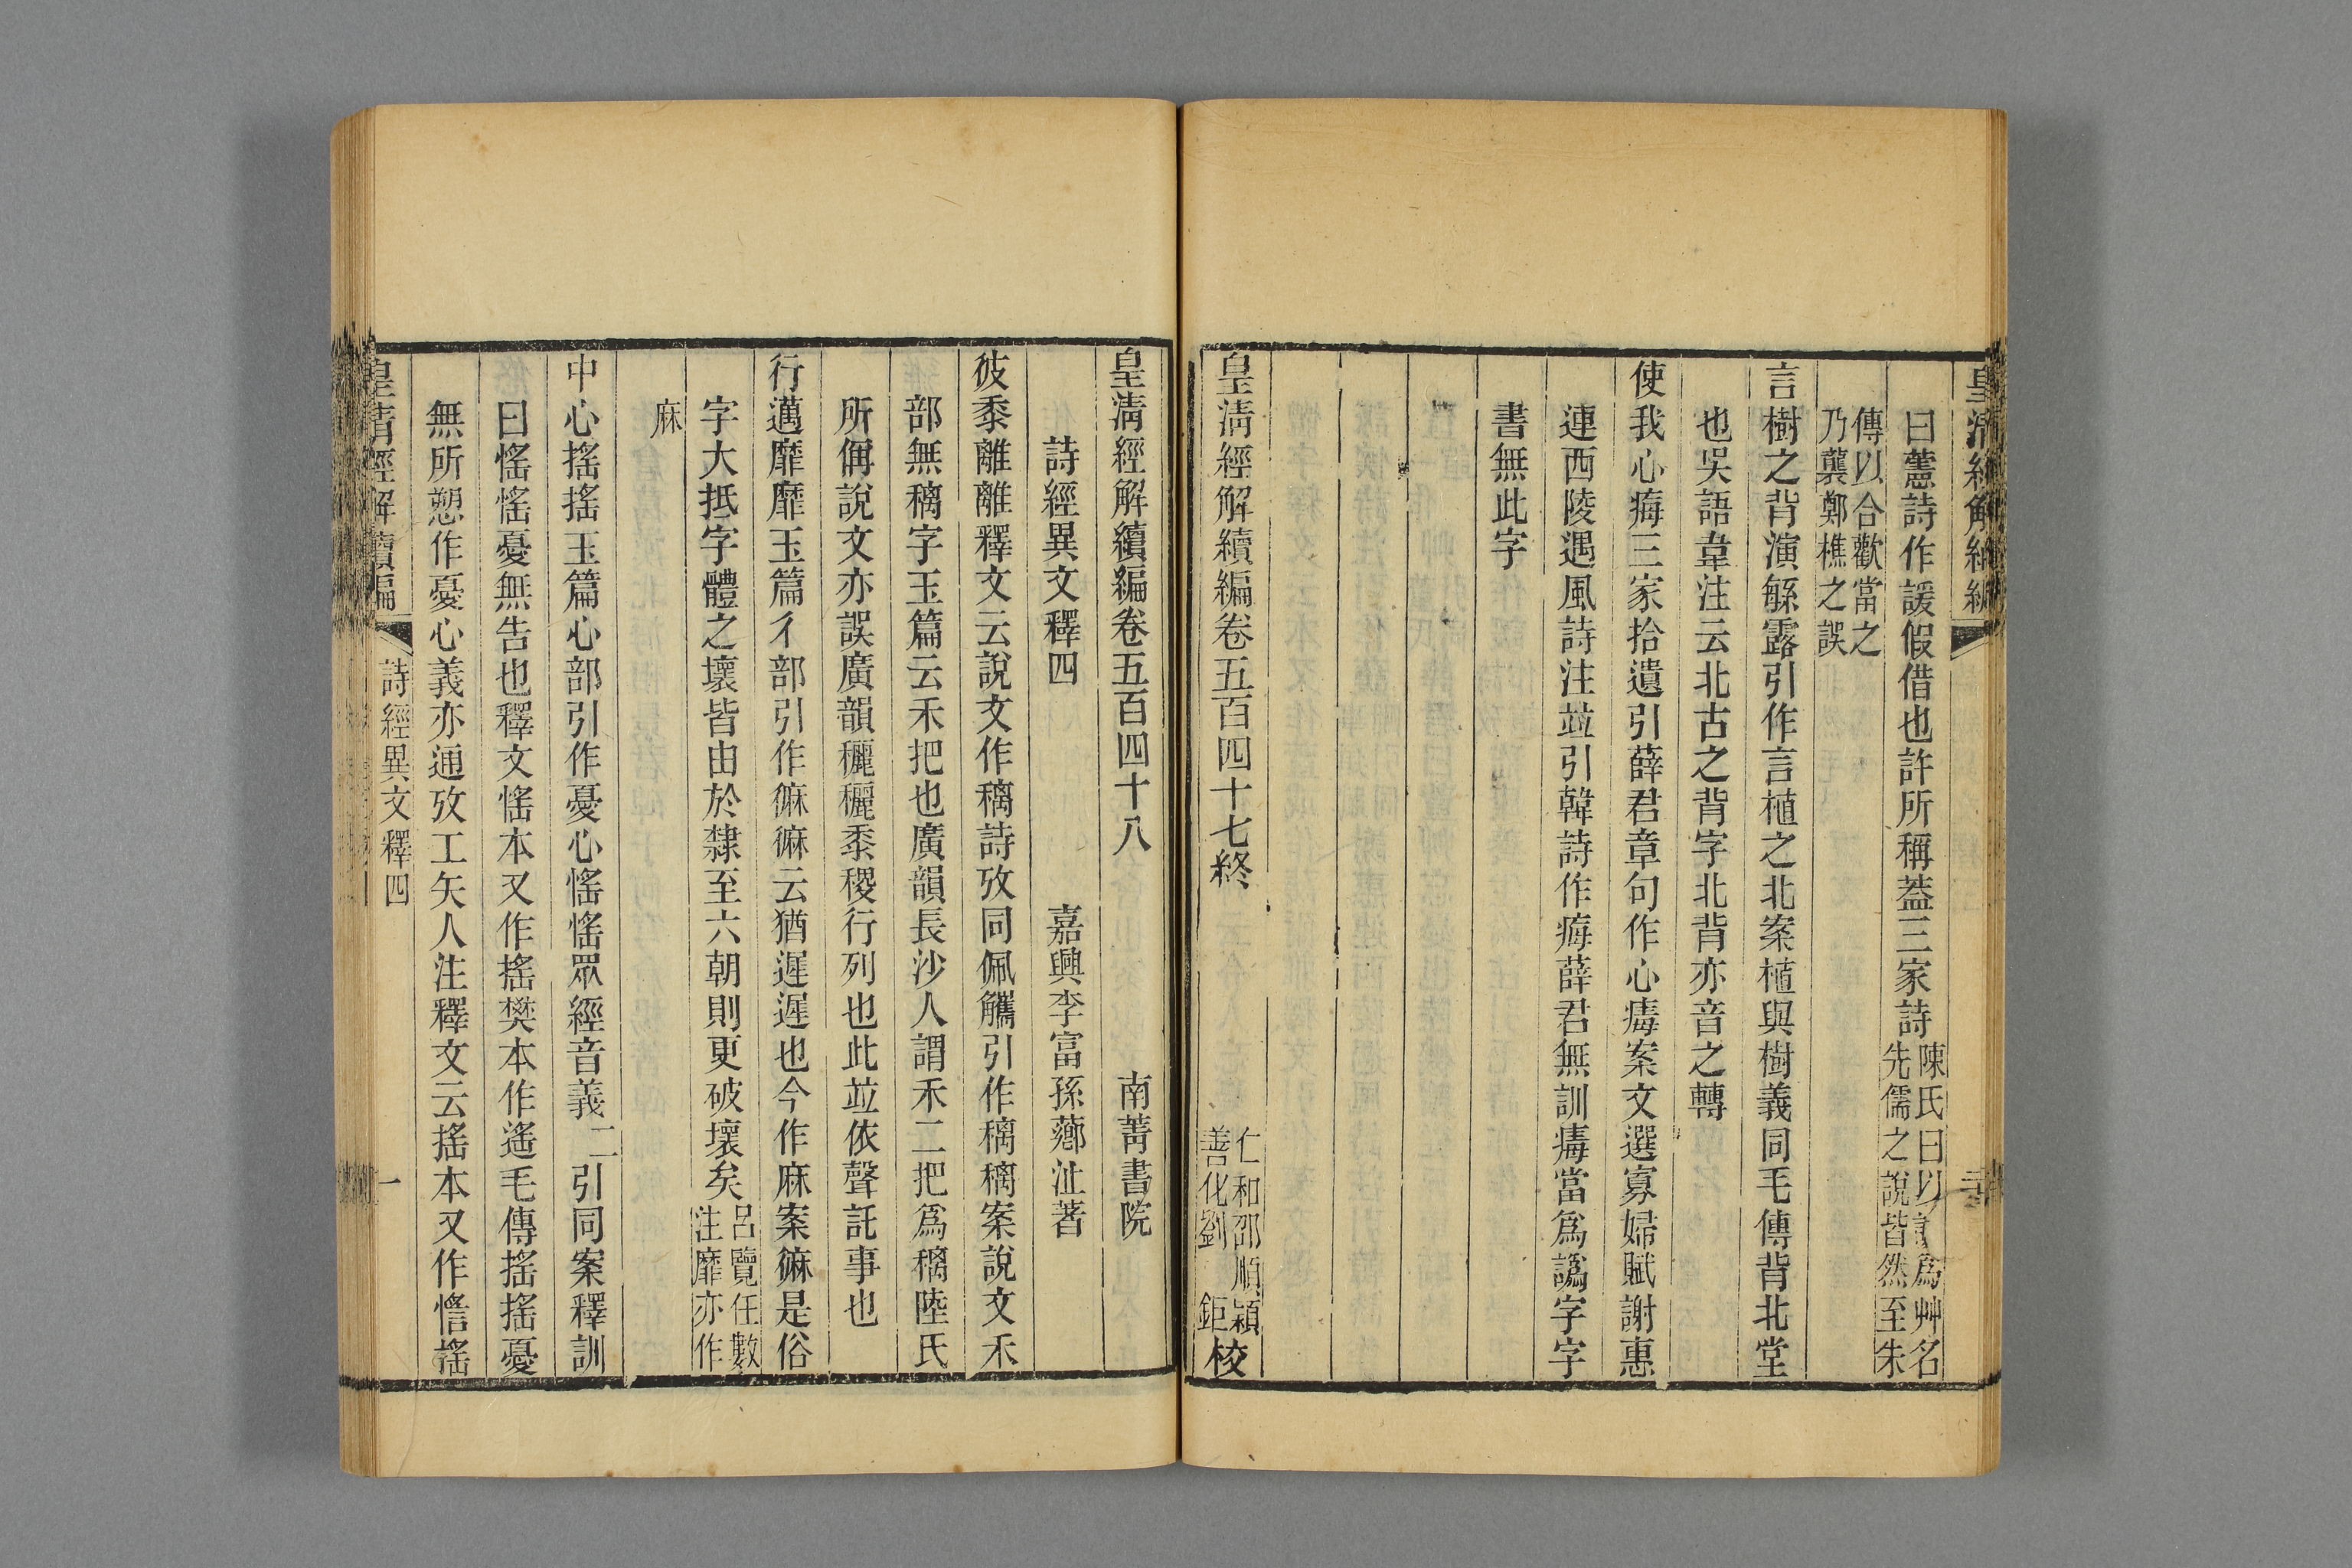 曰藼詩作諼假借也許所稱蓋三家詩陳氏曰以諼爲艸名
先儒之說皆然至朱
傳以合歡當之
乃襲鄭樵之誤
言樹之背演緐露引作言樴之北案樴與樹義同毛傳背北堂
也吳語韋注云北古之背字北背亦音之轉
使我心痗三家拾遺引薛君章句作心痗案文選寡婦賦謝惠
連西陵遇風詩注竝引韓詩作痗薛君無訓痗當爲譌字字
書無此字
皇淸經解續編卷五百四十七終
仁和邵順穎
善化劉鉅校
皇淸經解續編卷五百四十八
南菁書院
詩經異文釋四
嘉興李富孫薌沚著
彼黍離離釋文云說文作穲詩攷同佩觿引作穲穲案說文禾
部無穲字玉篇云禾把也廣韻長沙人謂禾二把爲穲陸氏
所偁說文亦誤廣韻穲穲黍稷行列也此竝依聲託事也
行邁靡靡玉篇彳部引作𢕗𢕗云猶遲遲也今作麻案𢕗是俗
字大抵字體之壞皆由於隸至六朝則更破壞矣呂覽任數
注靡亦作
麻
中心搖搖玉篇心部引作憂心愮愮眾經音義二引同案釋訓
曰愮愮憂無告也釋文愮本又作搖樊本作遙毛傳搖搖憂
無所愬作憂心義亦通攷工矢人注釋文云搖本又作愮搖
皇淸經解續編
詩經異文釋四
一